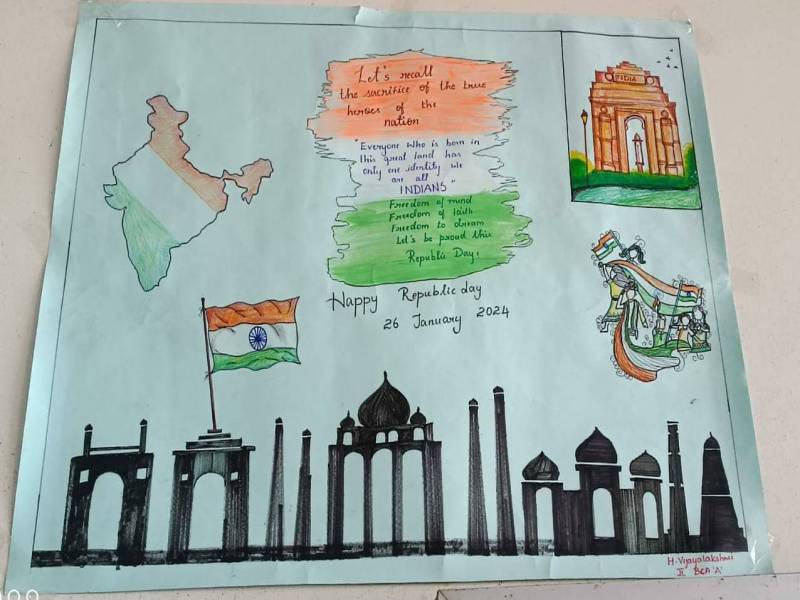 Let's recall
the sacrifice of the true
heroes of the
nation
"Everyone who is born in
this great land has
only one identity we
are all
INDIANS"
Freedom of mind
Freedom of faith
Freedom to dream
Let's be proud this
Republic Day!
Happy Republic day
26 January 2024
INDIA
H. Vijayalakshmi
II BCA 'A'